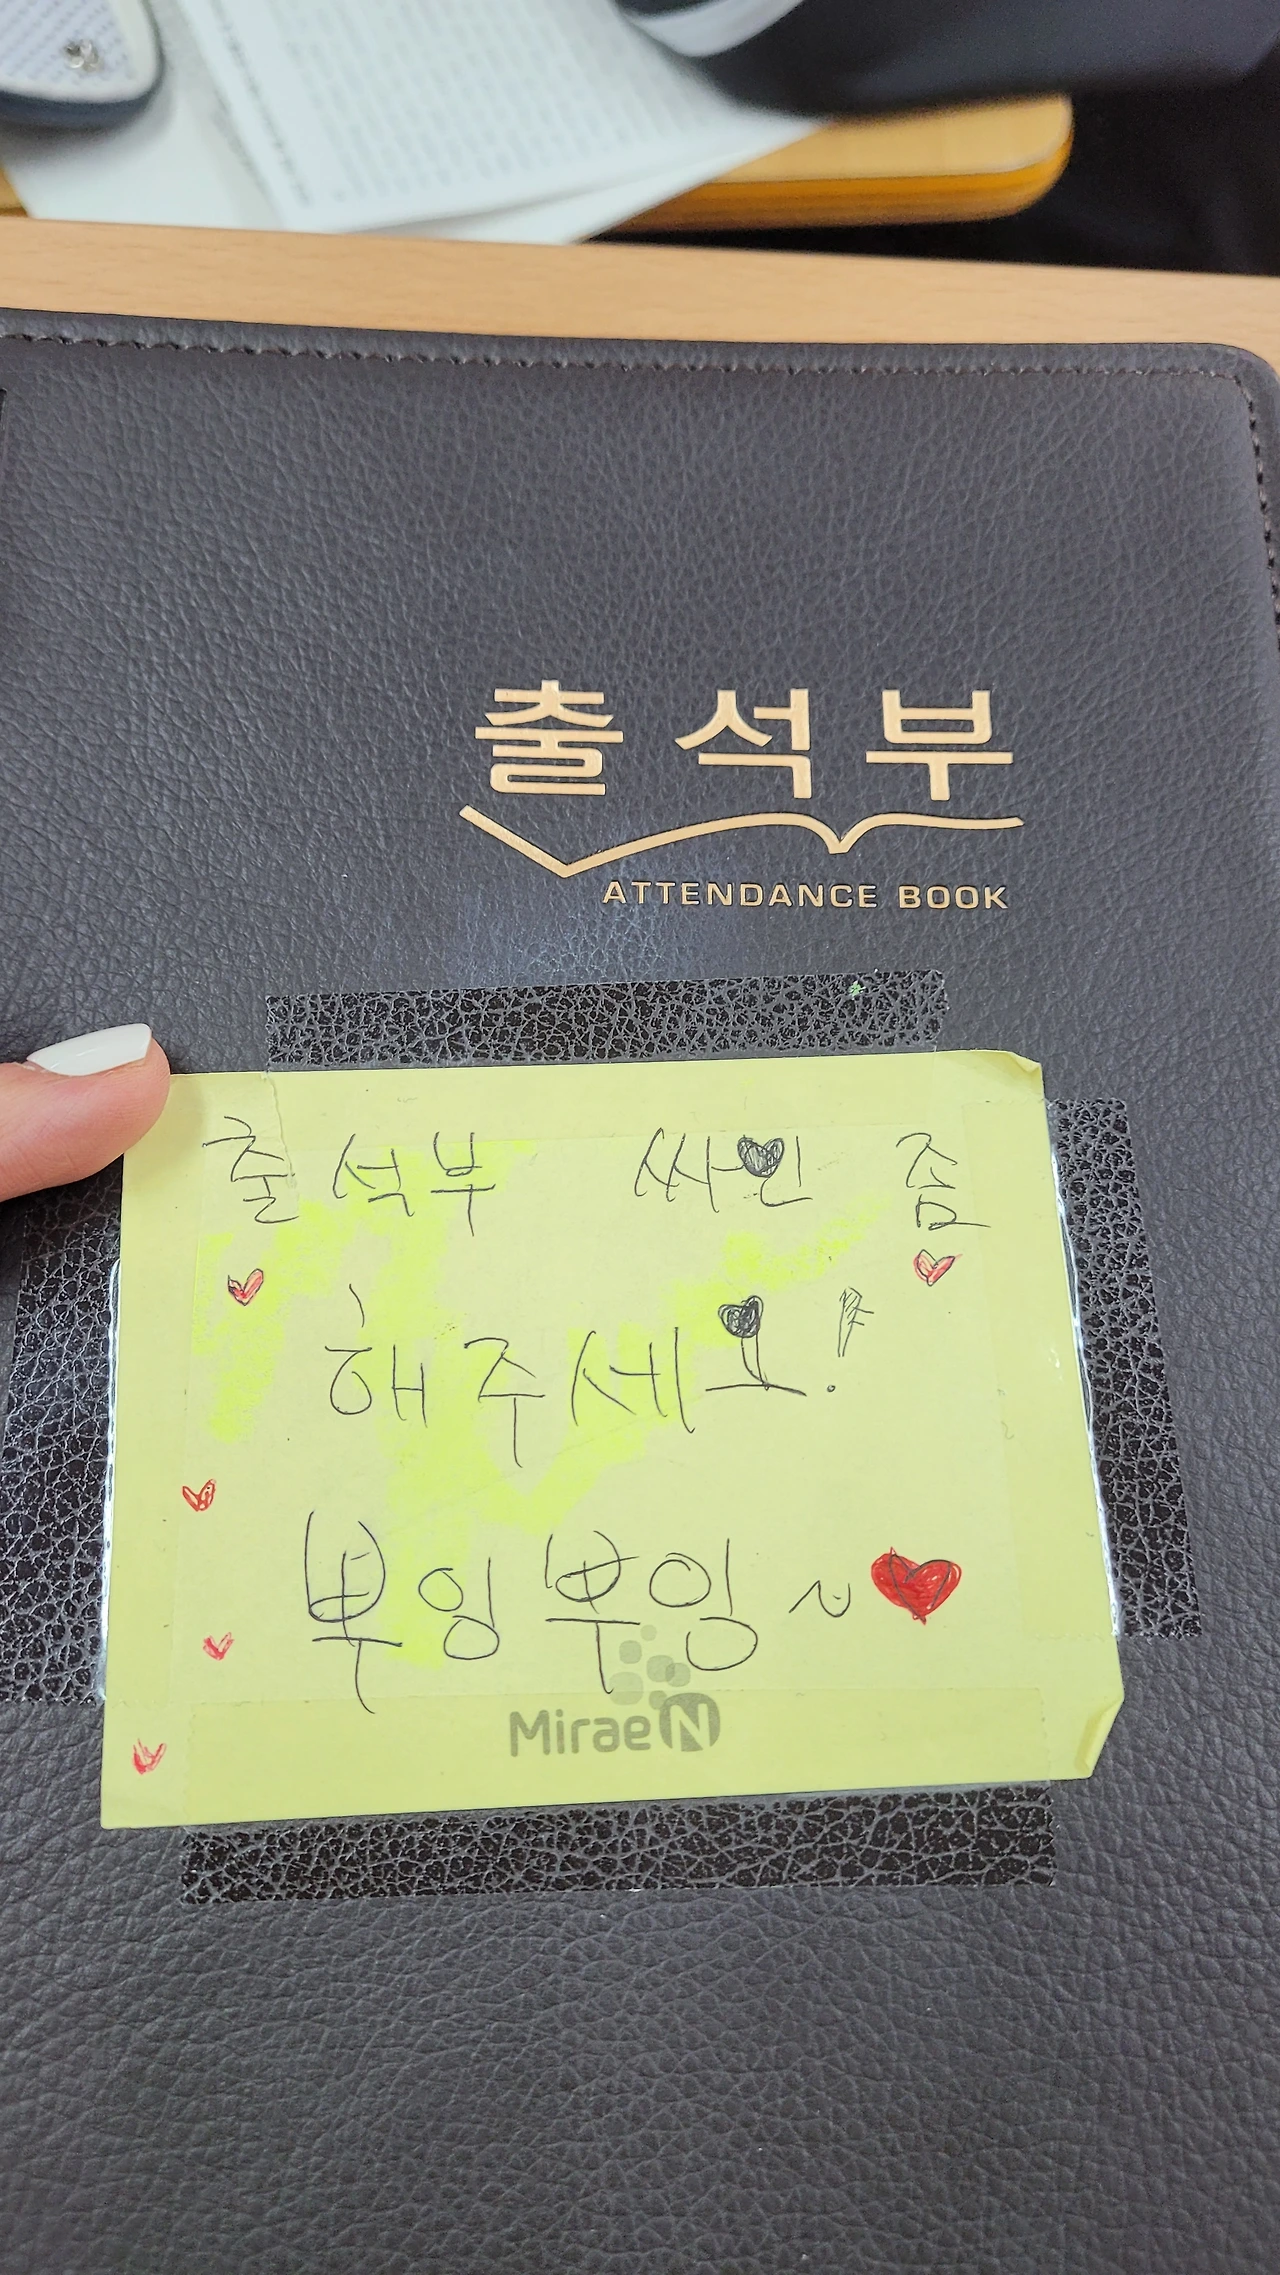 출석부
ATTENDANCE BOOK
출석부 싸인 좀
해주세요!
부잉부잉~
Mirae N